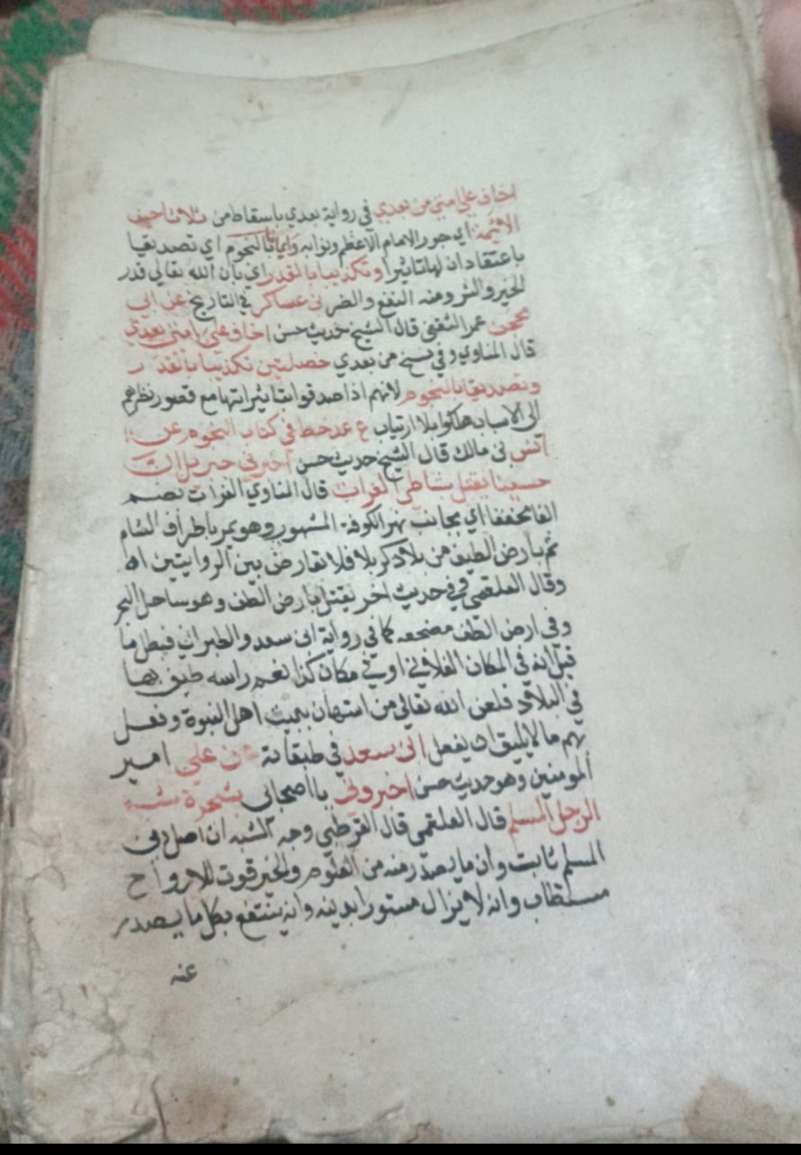 اخاف على امتي من بعدي في رواية بعدي باسقاط من ثلاثا حيف
الائمة اي جور الامام الاعظم ونوابه وايمانا بالنجوم اي تصديقا
باعتقاد ان لها تاثيرا وتكذيبا بالقدر اي بان الله تعالى قدر
الخير والشر ومنه النفع والضر بن عساكر في التاريخ عن ابي
محجن عمر الثقفي قال الشيخ حديث حسن اخاف على امتي بعدي
قال المناوي وفي نسخ من بعدي خصلتين تكذيبا بالقدر
وتصديقا بالنجوم لانهم اذا صدقوا بتاثيراتها مع قصور نظرهم
الى الاسباب هلكوا بلا ارتياب ع عد خط في كتاب النجوم عن
انس بن مالك قال الشيخ حديث حسن اخبرني جبريل ان
حسينا يقتل بشاطئ الفرات قال المناوي الفرات بضم
الفا مخففا اي بجانب نهر الكوفة المشهور وهو يمر باطراف الشام
ثم بارض الطف من بلاد كربلا فلا تعارض بين الروايتين اه
وقال العلقمي وفي حديث اخر يقتل بارض الطف وهو ساحل البحر
وفي ارض الطف مضجعه كما في رواية ابن سعد والطبراني فبطل ما
قيل انه في المكان الفلاني او في مكان كذا نعم راسه طيف بها
في البلاد فلعن الله تعالى من استهان ببيت اهل النبوة وفعل
بهم ما لا يليق ان يفعل ابن سعد في طبقاته عن علي امير
المومنين وهو حديث حسن اخبروني يا اصحابي بشجرة شبه
الرجل المسلم قال العلقمي قال القرطبي وجه الشبه ان اصل دين
المسلم ثابت وان ما يصدر منه من العلوم والخير قوت للارواح
مستطاب وانه لا يزال مستورا بدينه وانه ينتفع بكل ما يصدر
عنه